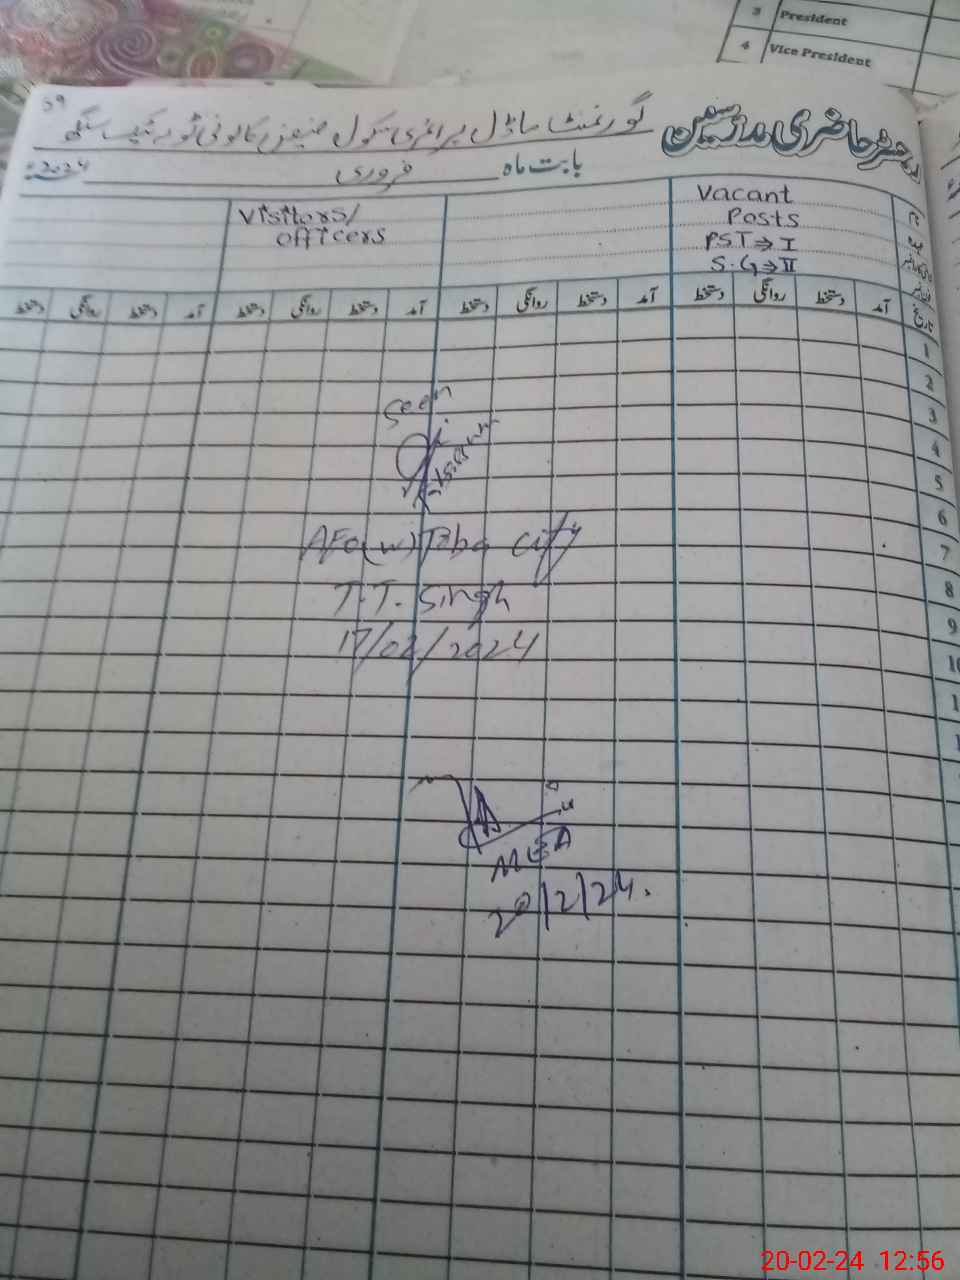 3 President
4 Vice President
59
رجسٹر حاضری مدرسین گورنمنٹ ماڈل پرائمری سکول کالونی ٹوبہ ٹیک سنگھ
بابت ماہ فروری 2024ء
Vacant
Posts
PST⇒I
S.G⇒II
Visitors/
officers
تاریخ
آمد دستخط روانگی دستخط آمد دستخط روانگی دستخط آمد دستخط روانگی دستخط آمد دستخط روانگی دستخط
1
2
3
4
5
6
7
8
9
10
Seen
AEO(W) Toba city
T.T. Singh
17/02/2024
MEA
20/2/24.
20-02-24 12:56